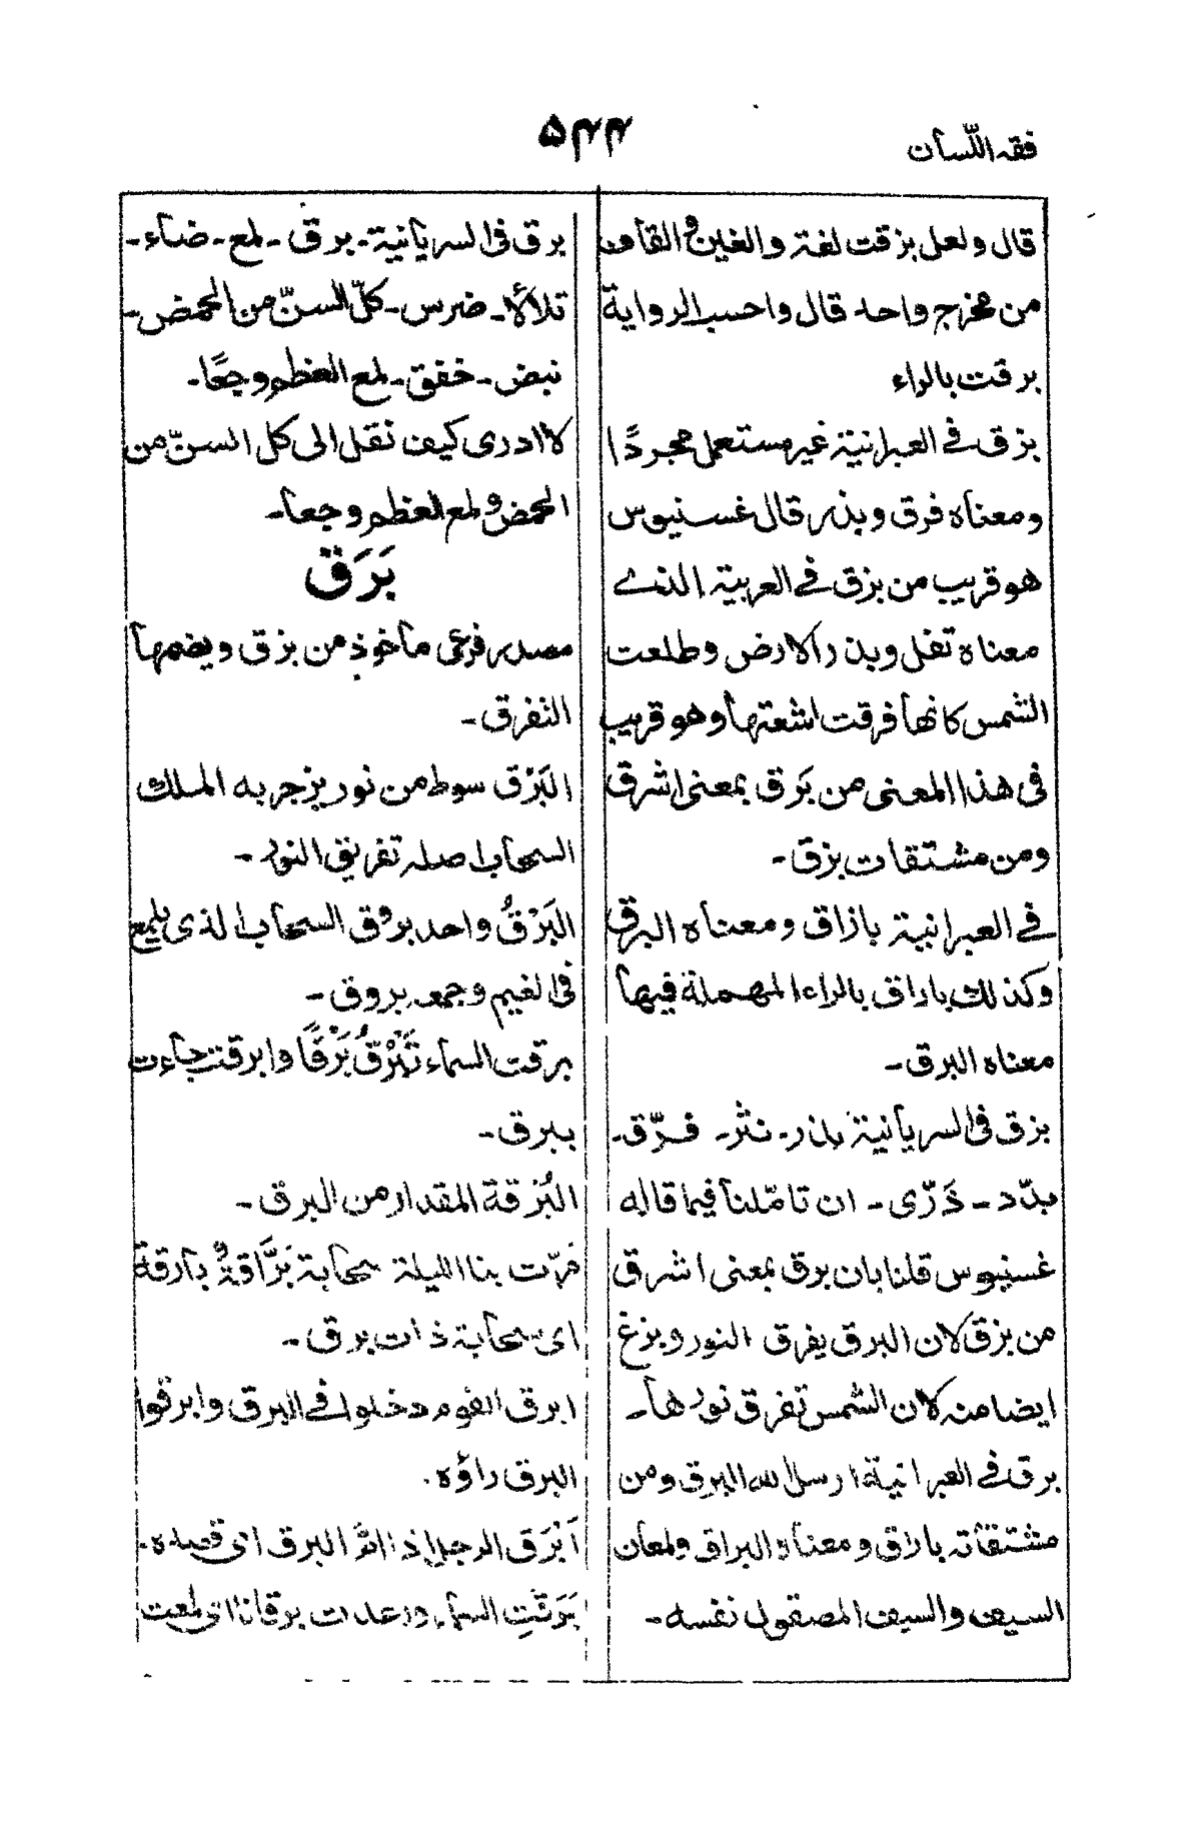 فقه اللّسان
۵۴۴
قال ولعل بزقت لغة والغين والقاف
من مخرج واحد قال واحسب الرواية
برقت بالراء
بزق في العبرانية غير مستعمل مجردًا
ومعناه فرق وبذر قال غسنيوس
هو قريب من بزق في العربية الذى
معناه تفل وبذر الارض وطلعت
الشمس كانها فرقت اشعتها وهو قريب
فى هذا المعنى من بَرَق بمعنى اشرق
ومن مشتقات بزق-
في العبرانية بازاق ومعناه البرق
وكذلك باراق بالراء المهملة فيها
معناه البرق-
بزق فى السريانية بذر- نثر- فرّق-
بدّد- ذَرّى- ان تامّلنا فيما قاله
غسنيوس قلنا بان برق بمعنى اشرق
من بزق لان البرق يفرق النور وبزغ
ايضا منه لان الشمس تفرق نورها-
برق في العبرانية ارسل الله البرق ومن
مشتقاته باراق ومعناه البراق ولمعان
السيف والسيف المصقول نفسه-
برق فى السريانية- برق- لمع- ضاء-
تلألأ- ضرس- كلّ السنّ من الحمض-
نبض- خفق- لمع العظم وجعًا-
لا ادرى كيف نقل الى كل السنّ من
الحمض ولمع العظم وجعا-
بَرَق
مصدر فرعى ماخوذ من بزق ويضمها
التفرق-
البَرْق سوط من نور يزجر به الملك
السحاب اصله تفريق النور-
البَرْقُ واحد بروق السحاب الذى يلمع
فى الغيم وجمعه بروق-
برقت السماء تَبْرُقُ بَرْقًا وابرقت جاءت
ببرق-
البُرْقة المقدار من البرق-
مَرّت بنا الليلة سحابة بَرَّاقةٌ بارقة
اى سحابة ذات برق-
ابرق القوم دخلوا في البرق وابرقوا
البرق راؤه.
اَبْرَق الرجل اذا امّ البرق اى قصده-
بَرَقَتِ السماء ورعدت برقانا اى لمعت